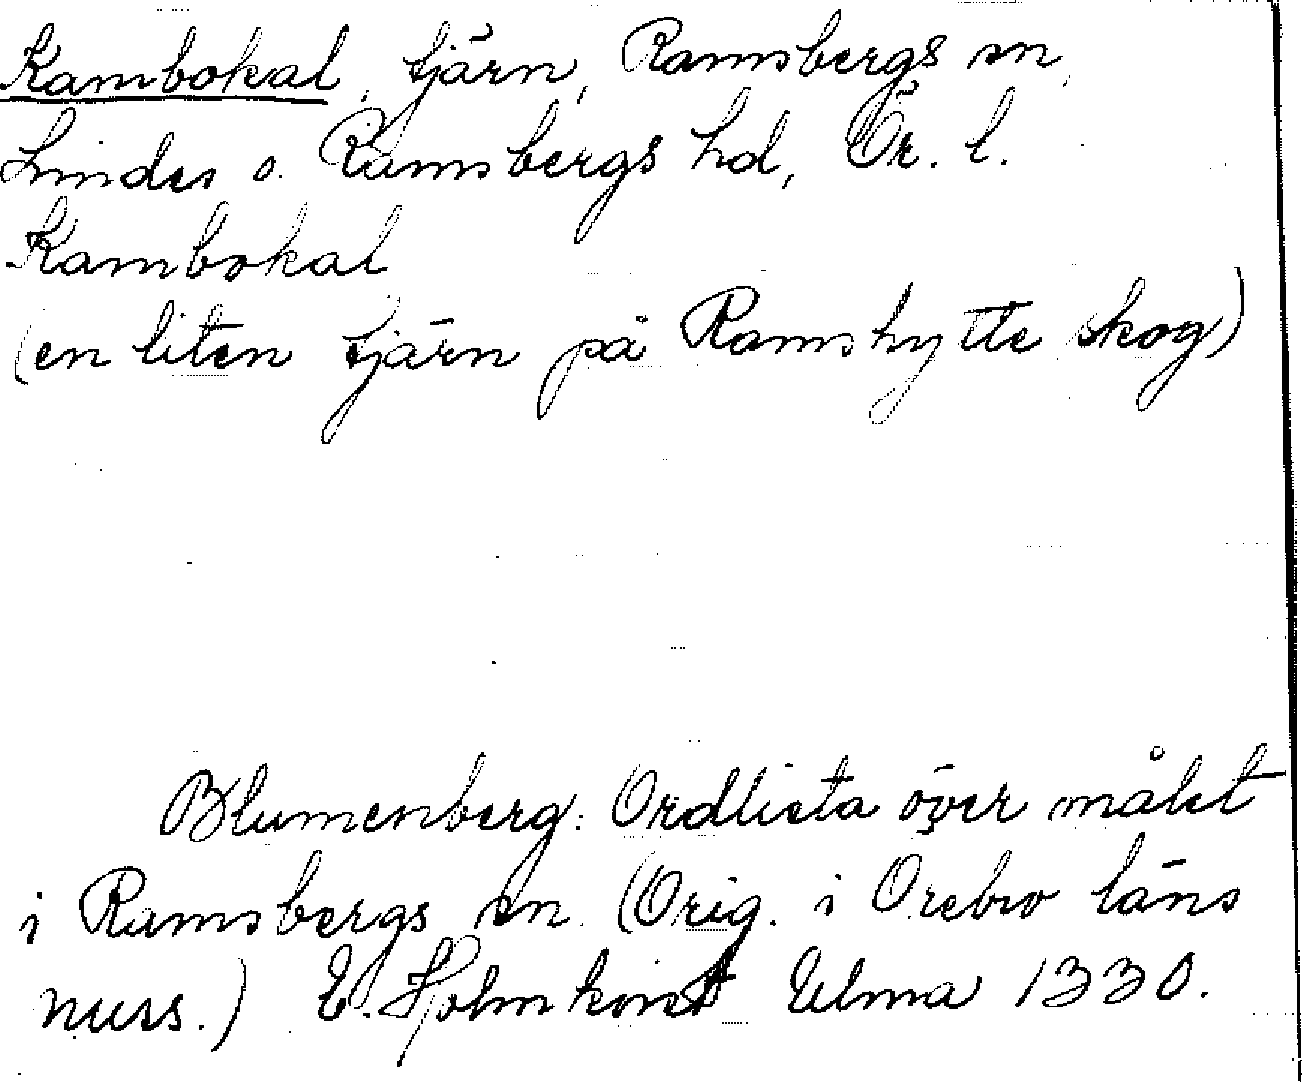 Kambokal, tjärn, Ramsbergs sn,
Lindes o. Ramsbergs hd, Ör. l.
Kambokal
(en liten tjärn på Ramshytte skog)
Blumenberg: Ordlista över målet
i Ramsbergs sn. (Orig. i Örebro läns
muss.) E. Holmkvist Ulma 1330.